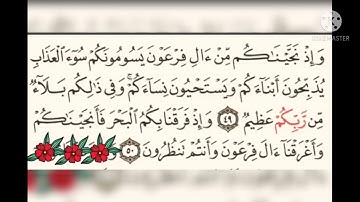 وَإِذْ نَجَّيْنَٰكُم مِّنْ ءَالِ فِرْعَوْنَ يَسُومُونَكُمْ سُوٓءَ ٱلْعَذَابِ
يُذَبِّحُونَ أَبْنَآءَكُمْ وَيَسْتَحْيُونَ نِسَآءَكُمْ ۚ وَفِى ذَٰلِكُم بَلَآءٌ
مِّن رَّبِّكُمْ عَظِيمٌ ٤٩ وَإِذْ فَرَقْنَا بِكُمُ ٱلْبَحْرَ فَأَنجَيْنَٰكُمْ
وَأَغْرَقْنَآ ءَالَ فِرْعَوْنَ وَأَنتُمْ تَنظُرُونَ ٥٠